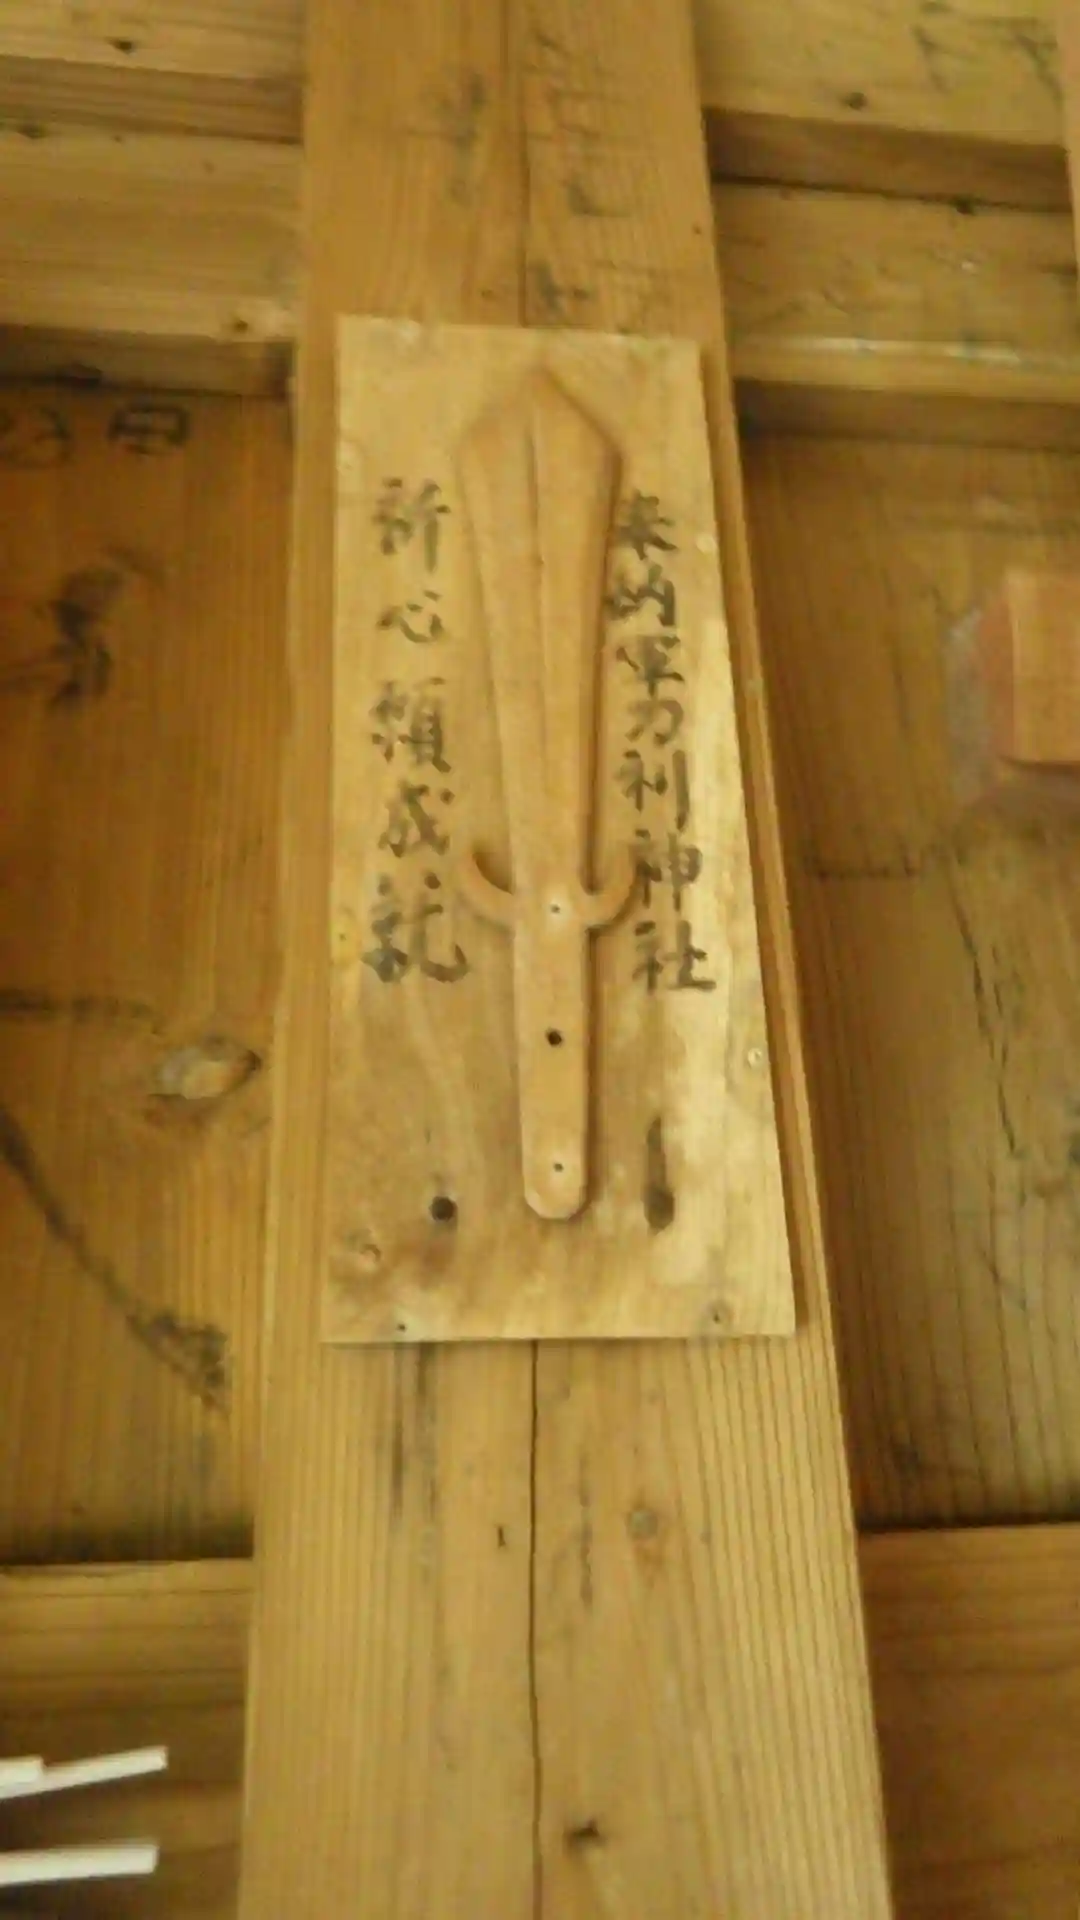 奉納軍刀利神社
祈心願成就